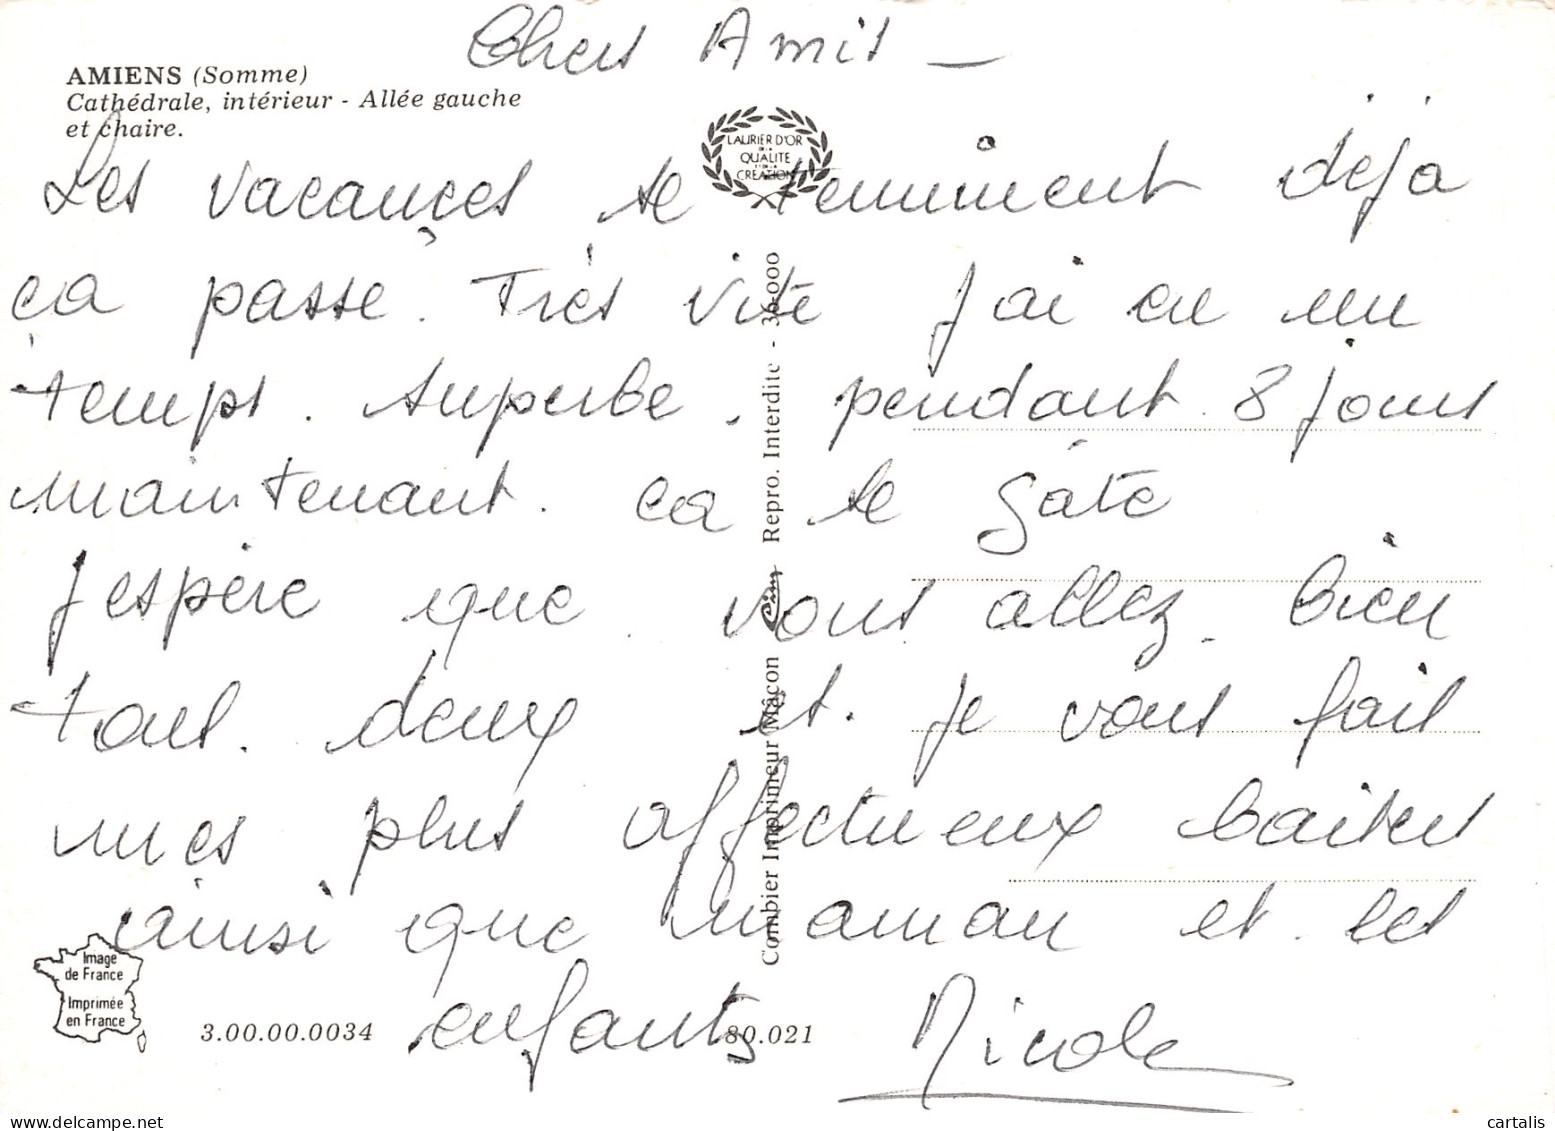 Chers Amis -
AMIENS (Somme)
Cathédrale, intérieur - Allée gauche
et chaire.
LAURIER D'OR
DE LA
QUALITE
ET DE LA
CREATION
Les vacances se terminent déjà
ça passe. Très vite j'ai eu un
temps. superbe. pendant 8 jours
maintenant. ça se gâte
j'espère que vous allez. bien
tous. deux et. je vous fais
mes plus affectueux baisers
ainsi que maman et. les
enfants
Nicole
Combier Imprimeur Mâcon Cim Repro. Interdite - 36-000
Image
de France
Imprimée
en France
3.00.00.0034
80.021
delcampe.net
cartalis